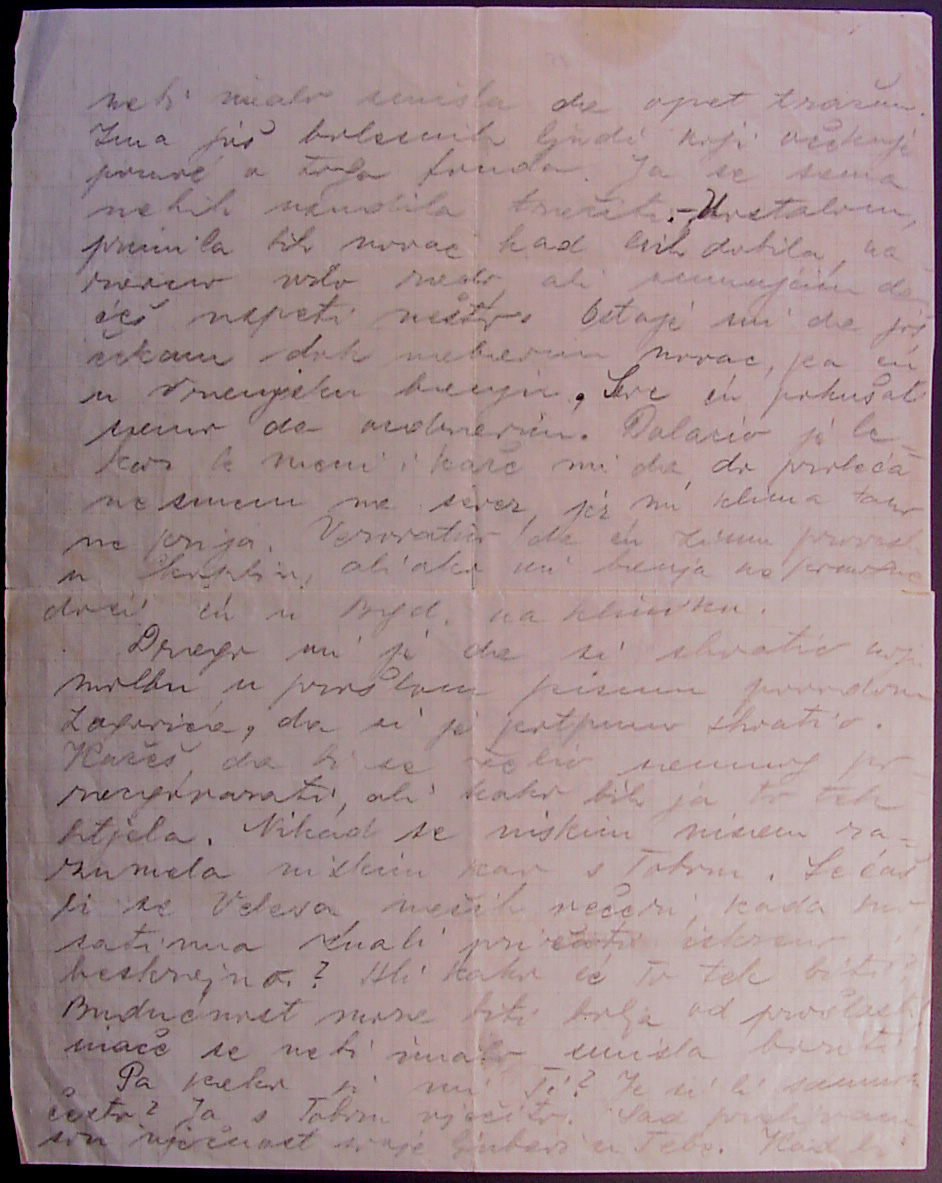 nebi imalo smisla da opet tražim.
Ima još bolesnih ljudi koji očekuju
pomoć a toga fonda. Ja se sama
nebih usudila tražiti. - Uostalom,
primila bih novac kad bih dobila, na
ravno vrlo rado, ali sumnjam da
ćeš uspeti nešto. Ostaje mi da još
čekam dok neberem novac, pa ću
u Vrnjačku banju. Sve ću pokušat
samo da ozdravim. Dolazio je le-
kar k meni i kaže mi da do proleća
nesmem na sever, jer mi klima tamo
ne prija. Verovatno da ću zimu provest
u Skoplju, ali ako mi banja ne pomogne
doći ću u Bgd. na kliniku.
Drago mi je da si shvatio moju
molbu u prošlom pismu povodom
Zagorića, da si je potpuno shvatio.
Kažeš da bi se želio samnom po-
razgovarati, ali kako bih ja to tek
htjela. Nikad se niskim nisam ra-
zumela niskim kao s Tobom. Sećaš
li se Velesa, naših večeri, kada smo
satima znali pričati iskreno i
beskrajno? Ali kako će to tek biti?
Budućnost mora biti bolja od prošlosti
inače se nebi imalo smisla boriti.
Pa kako si mi Ti? Je si li samnom
često? Ja s Tobom vječito. Sad
vječnost moje ljubavi u Tebe. Kad bi